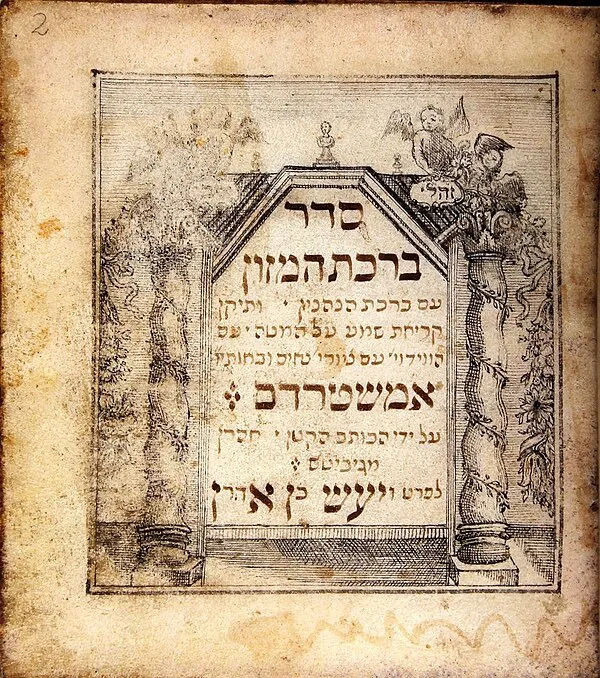 2
סדר
ברכת המזון
עם ברכת הנהנין ׳ ותיקן
קריאת שמע על המטה ׳ עם
הווידוי׳ עם ציורי נאים ובאותיו׳
אמשטרדם
על ידי הכותב הקטן ׳ אהרן
מגיביטש
לפרט ויעש כן אהרן